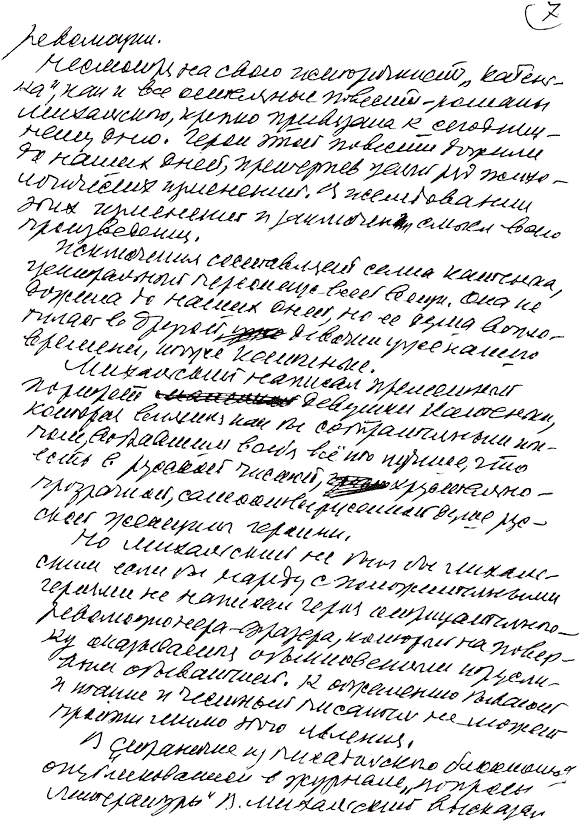 7
революции.
Несмотря на свою историчность, „Катень-
ка", как и все остальные повести-романы
Михальского, крепко привязана к сегодняш-
нему дню. Герои этой повести дожили
до наших дней, претерпев целый ряд психо-
логических изменений. В исследовании
этих изменений и заключен смысл всего
произведения.
Исключения составляет сама Катенька,
центральный персонаж всей вещи. Она не
дожила до наших дней, но ее душа вопло-
тилась в другой девочке уже нашего
времени, внучке
Михальский написал прекрасный
портрет девушки Катеньки,
которая явилась как бы собирательным
вобравшим в себя всё то лучшее, что
есть в русской чистой, хрустально-
прозрачной, самоотверженной душе рус-
ской женщины героини.
Но Михальский не был бы Михаль-
ским если бы наряду с положительными
героями не написал героя отрицательного-
революционера-фразера, который на повер-
ку оказывается обыкновенным трусли-
вым обывателем. К сожалению бывают
и такие и честный писатель не может
пройти мимо этого явления.
В странице из писательского блокнота
опубликованной в журнале „Вопросы
литературы" В. Михальский высказал